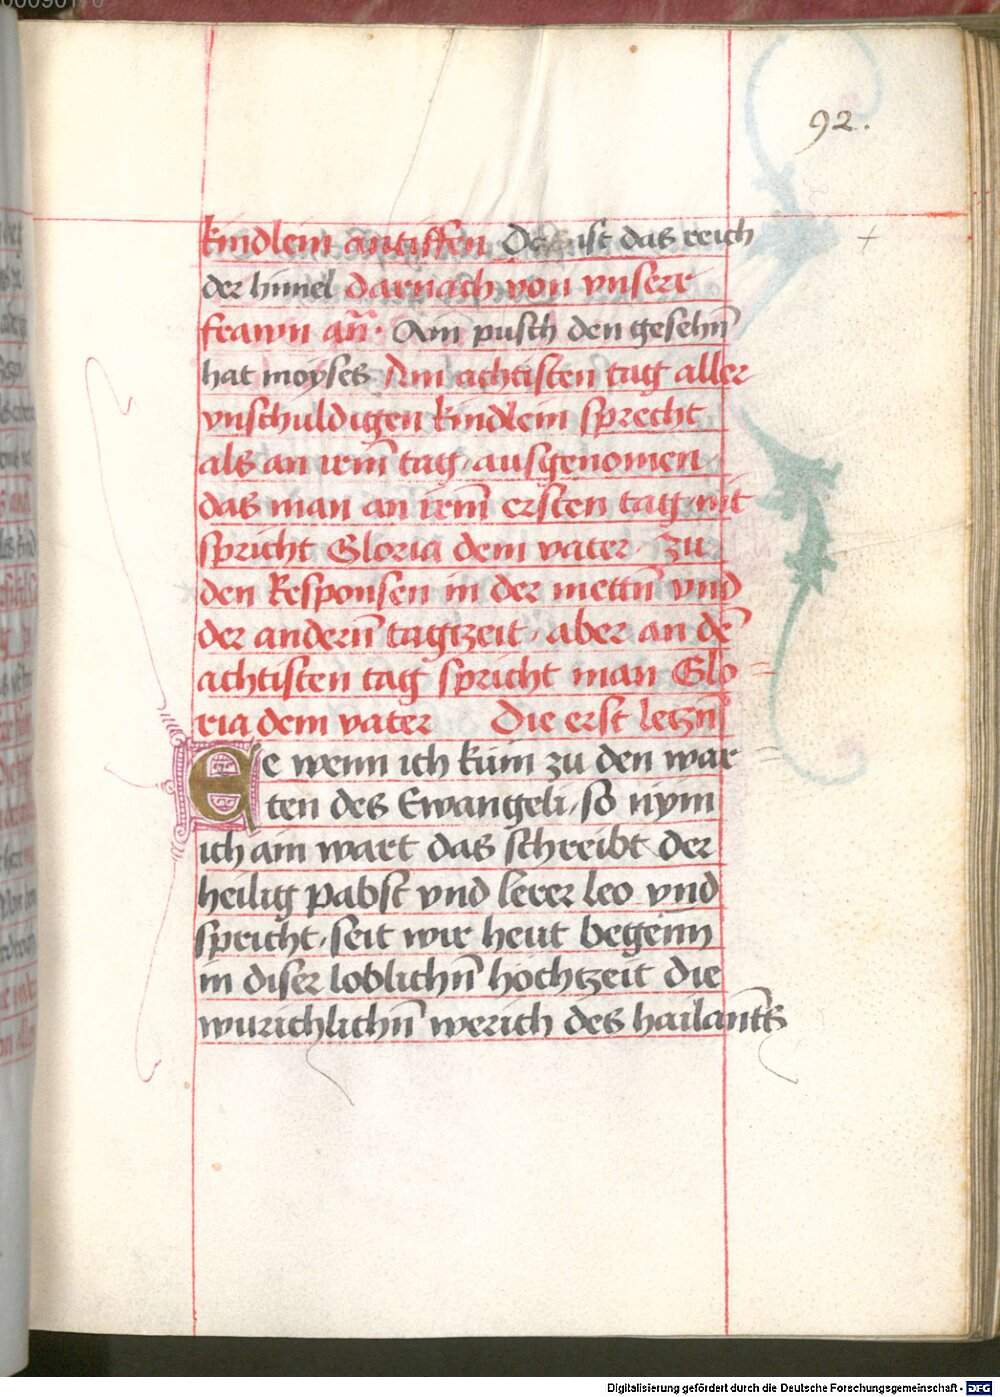 92.
kindlem antiffen Das ist das reich
der himel darnach von vnserr
frawn an̄. Am pusch den gesehn̄
hat moyses Am achtisten tag aller
vnschuldigen kindlein sprecht
als an irm̄ tag, ausgenomen
das man an irm̄ ersten tag nit
spricht Gloria dem vater, zu
den Responsen in der mettn̄ vnd
der andern̄ tagtzeit, aber an dē
achtisten tag spricht man Glo-
ria dem vater Die erst letzn̄
Ee wenn ich kum zu den war
ten des Ewangeli, so nym
ich ain wart das schreibt der
heilig pabst vnd lerer leo vnd
spricht, seit wir heut begenn
in diser loblichn̄ hochtzeit die
wurichlichn̄ werich des hailan̄ts
Digitalisierung gefördert durch die Deutsche Forschungsgemeinschaft - DFG